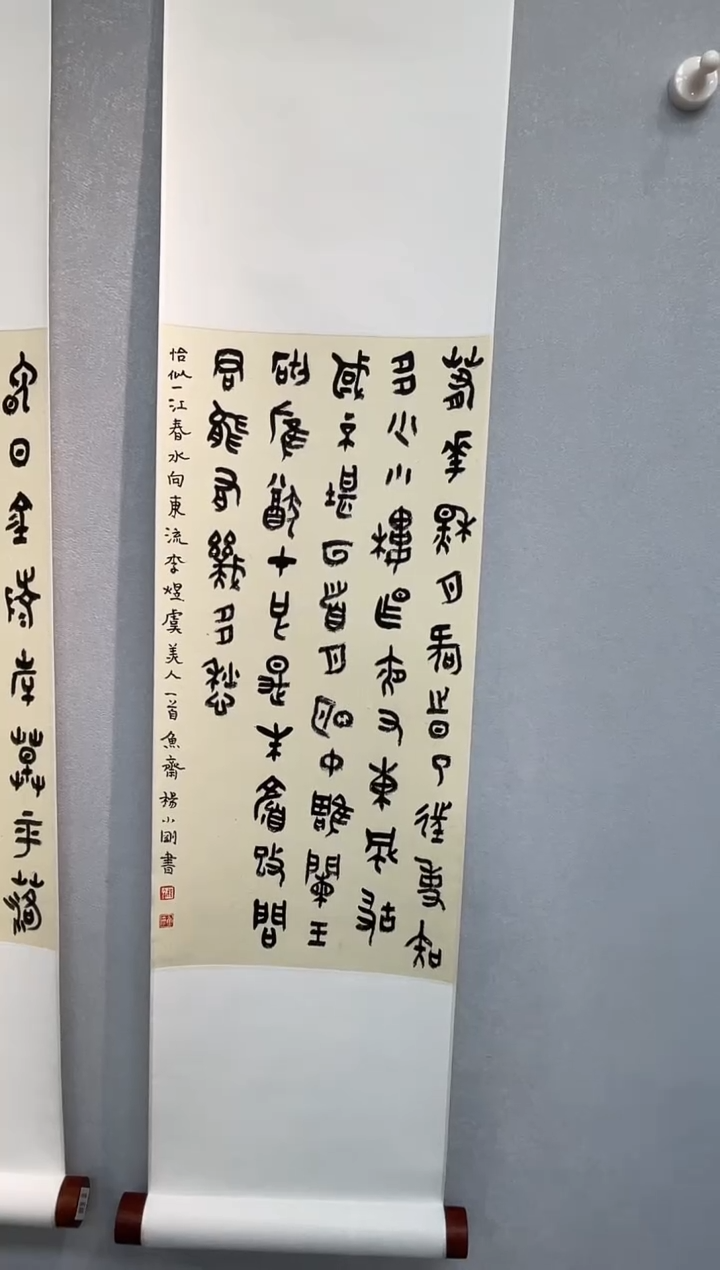 春華秋月何時了往事知
多少小樓昨夜又東風故
國不堪回首月明中雕闌玉
砌應猶在只是朱顏改問
君能有幾多愁
恰似一江春水向東流李煜虞美人一首魚齋楊小剛書
晚日金陵岸草平落